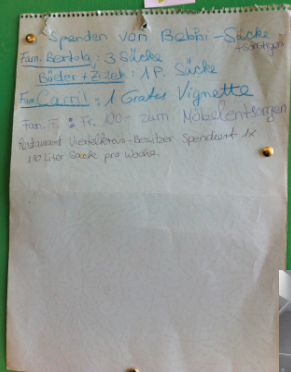 Spenden von Bebbi-Säcke
+ sonstigen
Fam. Bertola: 3 Säcke
Bäder + Zizek: 1 P. Säcke
Fam. : 1 Gratis Vignette
Fam. : Fr. 100.- zum Möbelentsorgen
Restaurant Betreiber Spendiert 1x
Liter Säcke pro Woche.